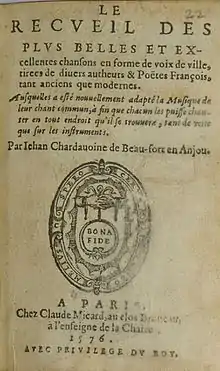 22
LE
RECVEIL DES
PLVS BELLES ET EX-
cellentes chansons en forme de voix de ville,
tirees de diuers autheurs & Poëtes François,
tant anciens que modernes.
Ausquelles a esté nouuellement adapté la Musique de
leur chant commun, à fin que chacun les puisse chan-
ter en tout endroit qu'il se trouuera, tant de voix
que sur les instruments.
Par Iehan Chardauoine de Beau-fort en Anjou.
BONA
FIDE
A PARIS,
Chez Claude Micard, au clos
à l'enseigne de la Chaire.
1576.
AVEC PRIVILEGE DV ROY.